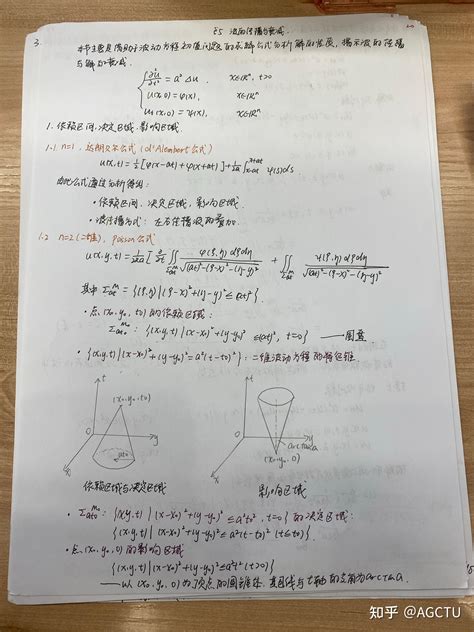 §5 波的传播与衰减
3.
本节主要是借助于波动方程初值问题的求解公式分析解的性质，揭示波的传播
与解的衰减.
∂²u/∂t² = a²Δu, x∈ℝⁿ, t>0
u(x,0) = φ(x), x∈ℝⁿ
u_t(x,0) = ψ(x), x∈ℝⁿ
1. 依赖区间、决定区域、影响区域.
1.1 n=1, 达朗贝尔公式 (d'Alembert公式)
u(x,t) = 1/2[φ(x-at)+φ(x+at)] + 1/2a ∫_{x-at}^{x+at} ψ(s)ds
由此公式通过分析得出:
· 依赖区间、决定区域、影响区域.
· 波传播方式: 左右传播波的叠加.
1.2 n=2 (二维), Poisson公式
u(x,y,t) = 1/2πa [∂/∂t ∬_{Σ_{at}^M} φ(ξ,η)dξdη/√((at)²-(ξ-x)²-(η-y)²) + ∬_{Σ_{at}^M} ψ(ξ,η)dξdη/√((at)²-(ξ-x)²-(η-y)²)
其中 Σ_{at}^M = {(ξ,η)|(ξ-x)²+(η-y)² ≤ (at)²}.
· 点 (x₀,y₀,t₀) 的依赖区域:
Σ_{at₀}^{M₀}: {(x,y,t)|(x-x₀)²+(y-y₀)² ≤ (at₀)², t=0} ⟶ 圆盘
· {(x,y,t)|(x-x₀)²+(y-y₀)² = a²(t-t₀)²}: 二维波动方程的特征锥.
t
(x₀,y₀,t₀)
O
y
at₀
x
t
O
y
arctan a
(x₀,y₀,0)
x
依赖区域与决定区域
影响区域
· Σ_{at₀}^{M₀} = {(x,y,t)|(x-x₀)²+(y-y₀)² ≤ a²t₀², t=0} 的决定区域:
{(x,y,t)|(x-x₀)²+(y-y₀)² ≤ a²(t-t₀)² (t≤t₀)}.
· 点 (x₀,y₀,0) 的影响区域
{(x,y,t)|(x-x₀)²+(y-y₀)² ≤ a²t² (t>0)}
⟶ 以 (x₀,y₀,0) 为顶点的圆锥体, 其母线与t轴的交角为arctan a.
知乎 @AGCTU